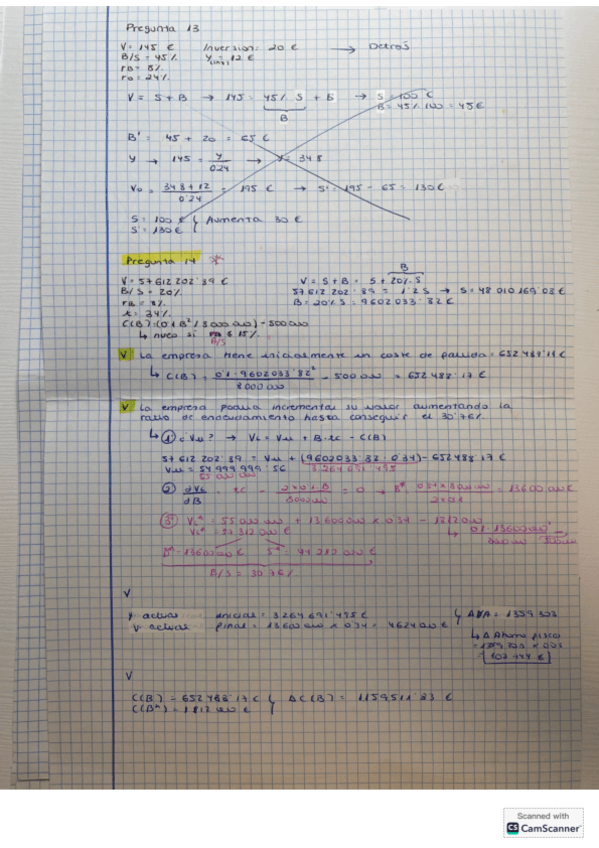 Pregunta 13
V = 145 € Inversion: 20 € → Detrás
B/S = 45% Y = 12 €
rB = 8%
ro = 24%
V = S + B → 145 = 45% S + S → S = 100 €
B B = 45% 100 = 45 €
B' = 45 + 20 = 65 €
Y → 145 = Y / 0'24 → Y = 34'8
Vo = 34'8 + 12 / 0'24 = 195 € → S' = 195 - 65 = 130 €
S = 100 €
S' = 130 € } Aumenta 30 €
Pregunta 14 *
V = 57 612 202'89 € V = S + B = S + 20% S
B
B/S = 20% 57 612 202'89 = 1'2 S → S = 48 010 169'08 €
rB = 8% B = 20% S = 9602 033'82 €
t = 34%
C(B) = (0'1 B² / 8 000 000) - 500 000
↳ nuco si B/S 15%
V La empresa tiene inicialmente un coste de partida = 652 487'17 €
↳ C(B) = 0'1 · 9602033'82² / 8 000 000 - 500 000 = 652 488'17 €
V La empresa podria incrementar su valor aumentando la
ratio de endeudamiento hasta conseguir el 30'76%
↳ ① ¿Vu? → VL = Vu + B·tc - C(B)
57 612 202'89 = Vu + (9602033'82 · 0'34) - 652 488'17 €
Vu = 54 999 999'56 3 264 691'495
55 000 000
② dVL / dB = tc - 2×0'1·B / 8000 000 = 0 → B* = 0'34 × 8 000 000 / 2×0'1 = 13 600 000 €
③ VL* = 55 000 000 + 13 600 000 × 0'34 - 1812 000
VL* = 57 812 000 € ↳ 0'1·13600 000² / 8000 000 - 500 000
B* = 13 600 000 € S* = 44 212 000 €
B/S = 30'76%
V
V actual inicial = 3 264 691'495 €
V actual final = 13 600 000 × 0'34 = 4624 000 € } Δ VA = 1359 303
↳ Δ Ahorro fiscal
V
C(B) = 652 488'17 €
C(B*) = 1 812 000 € } ΔC(B) = 1159 511'83 €
Scanned with
CS CamScanner